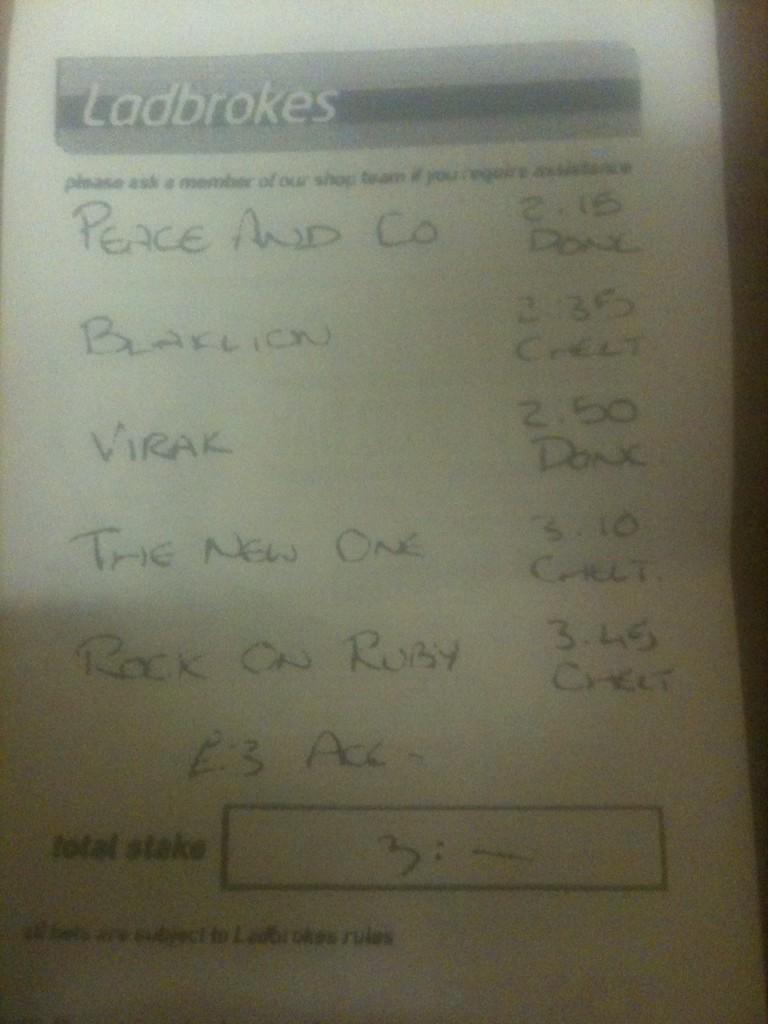 Ladbrokes
please ask a member of our shop team if you require assistance
PEACE AND CO 2.15
DONC
BLAKLION 2.35
CHELT
VIRAK 2.50
DONC
THE NEW ONE 3.10
CHELT.
ROCK ON RUBY 3.45
CHELT
£3 ACC -
total stake 3:—
all bets are subject to Ladbrokes rules